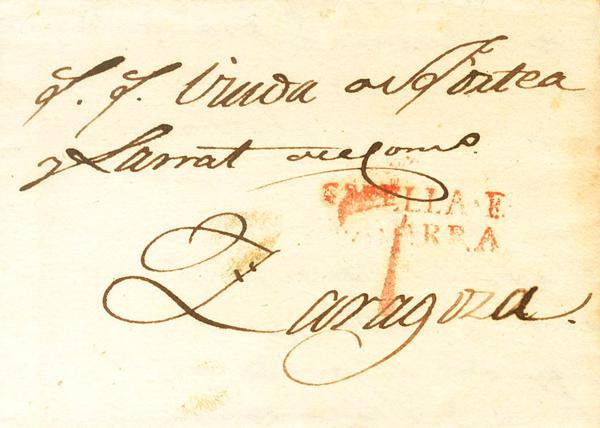 S. S. Viuda de Fortea
y Larrat del Com.o
ESTELLA·E
NAVARRA
Zaragoza.